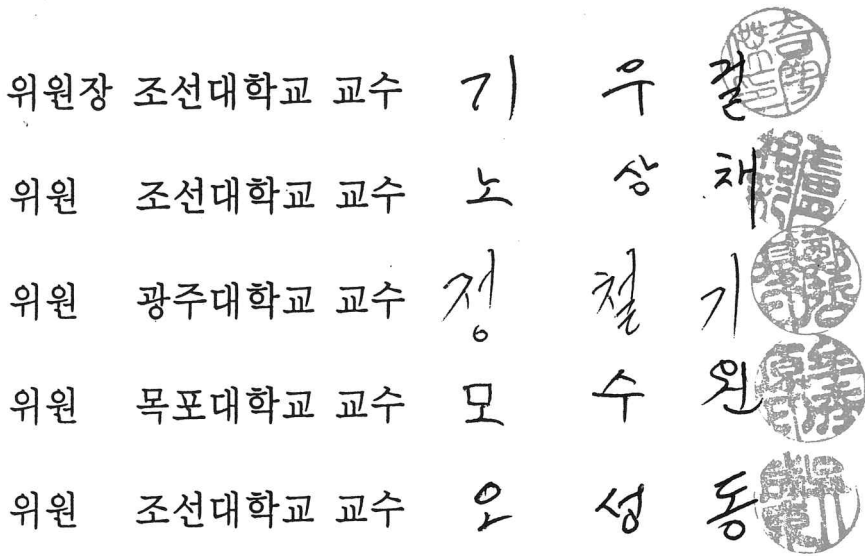 위원장 조선대학교 교수 기 우 걸
위원 조선대학교 교수 노 상 채
위원 광주대학교 교수 정 철 기
위원 목포대학교 교수 모 수 원
위원 조선대학교 교수 오 성 동